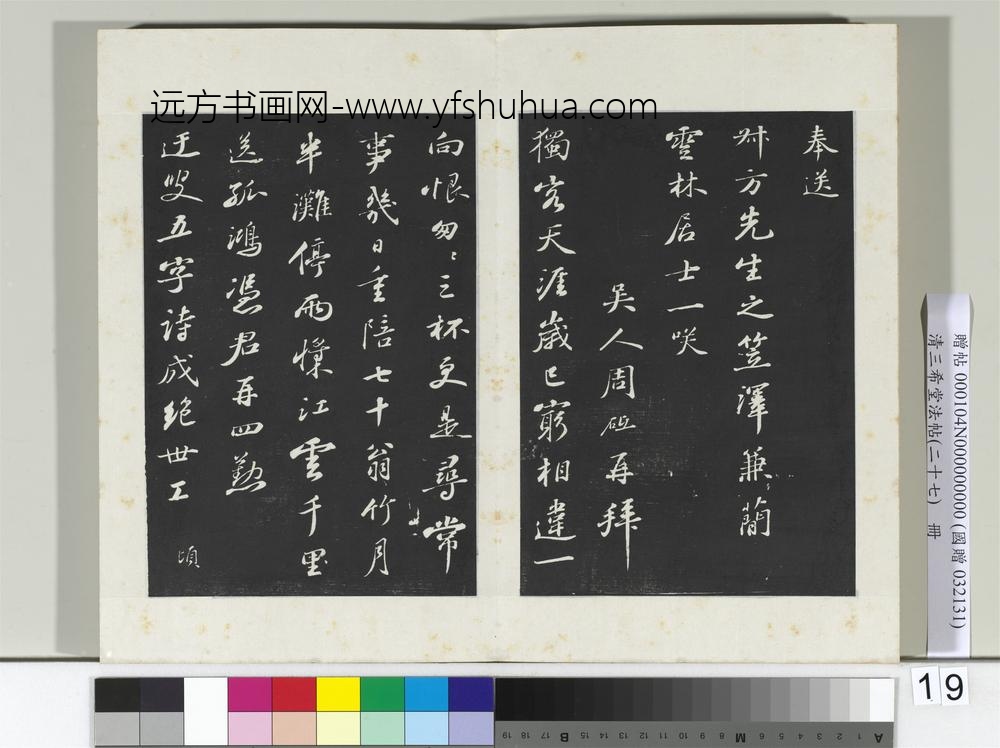 远方书画网-www.yfshuhua.com
奉送
叔方先生之笠澤兼簡
雲林居士一咲
吳人周砥再拜
獨客天涯歲已窮相違一
向恨匆〻三杯更是尋常
事幾日重陪七十翁竹月
半灘停雨檥江雲千里
送孤鴻憑君再四懃
迂叟五字詩成絶世工
頃
贈帖 000104N000000000 (國贈 032131)
清三希堂法帖(二十七) 冊
19
A 1 2 3 4 5 6 M 8 9 10 11 12 13 14 15 B 17 18 19